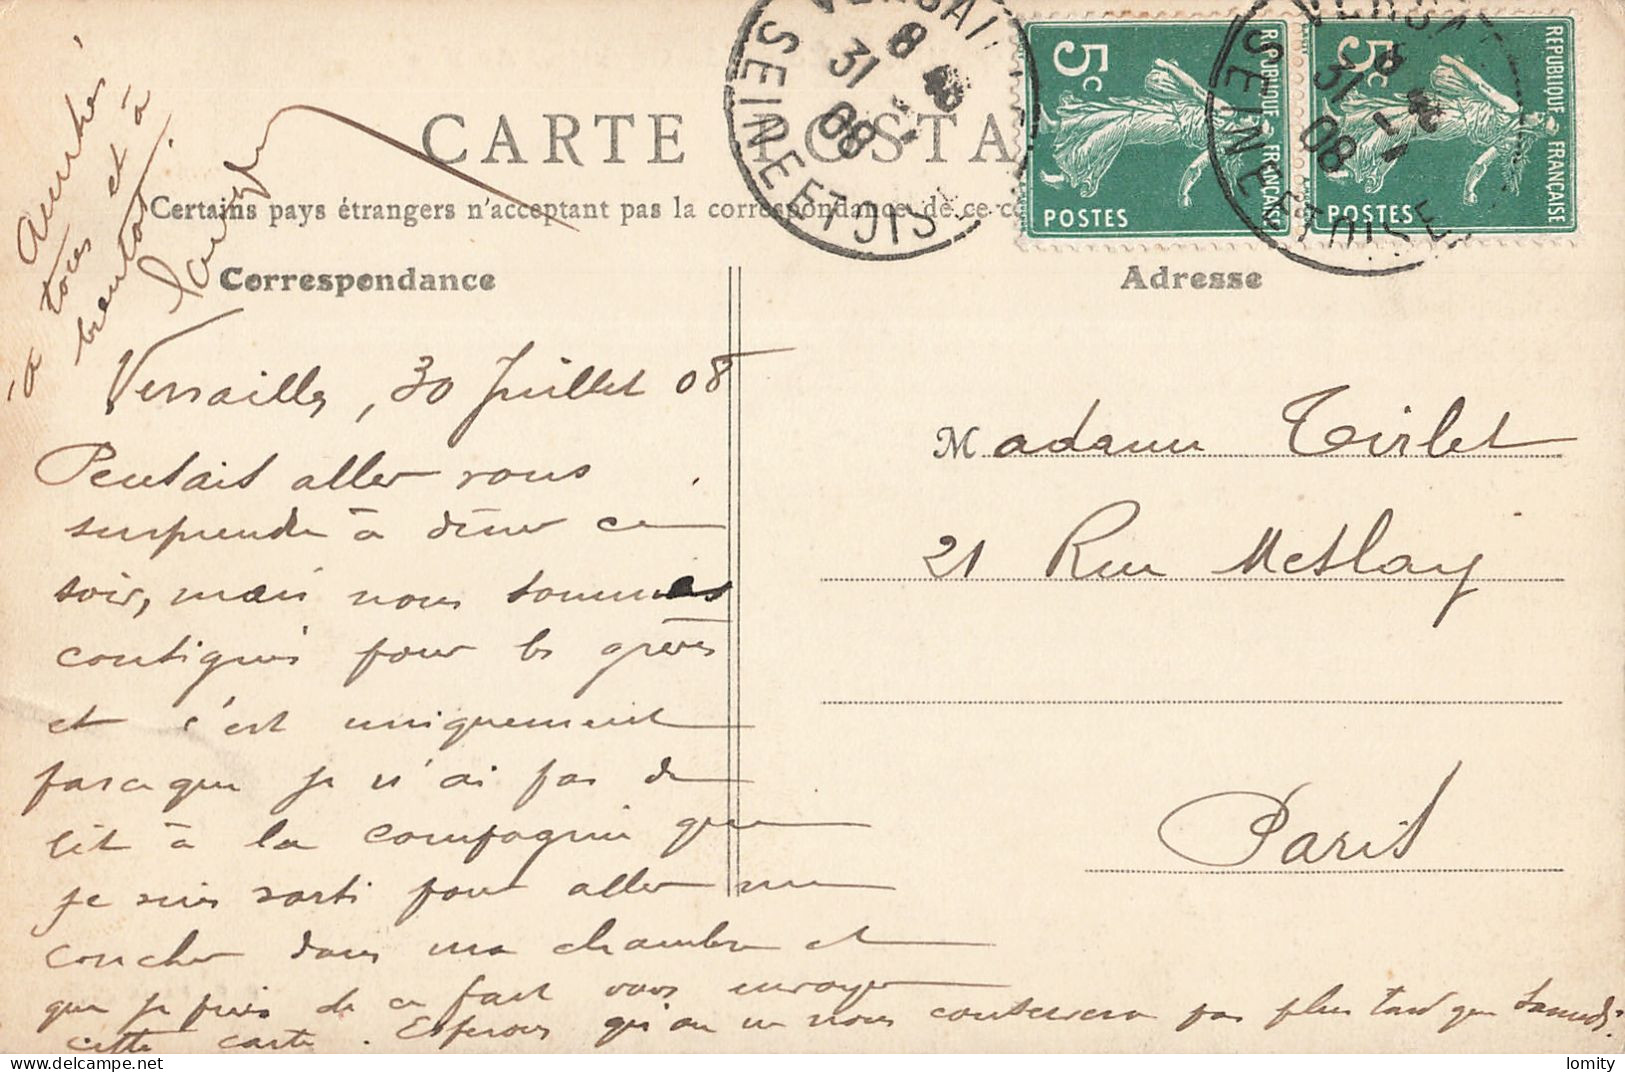 CARTE POSTA
Certains pays étrangers n'acceptant pas la correspondance de ce co
Correspondance
Adresse
VERSAI
8
31
08
SEINE ET OISE
5c
REPUBLIQUE FRANÇAISE
POSTES
5c
REPUBLIQUE FRANÇAISE
POSTES
31
08
SEINE ET OISE
Versailles, 30 Juillet 08
Pensais aller vous
surprendre à dîner ce
soir, mais nous sommes
consignés pour les grèves
et c'est uniquement
parce que je n'ai pas de
lit à la compagnie que
je suis sorti pour aller me
coucher dans ma chambre et
que je puis de ce fait vous envoyer
cette carte. Espérons qu'on ne nous conservera pas plus tard que Samedi.
Amitiés
à tous et à
bientôt.
Madame Tirlet
21 Rue Meslay
Paris
lomity